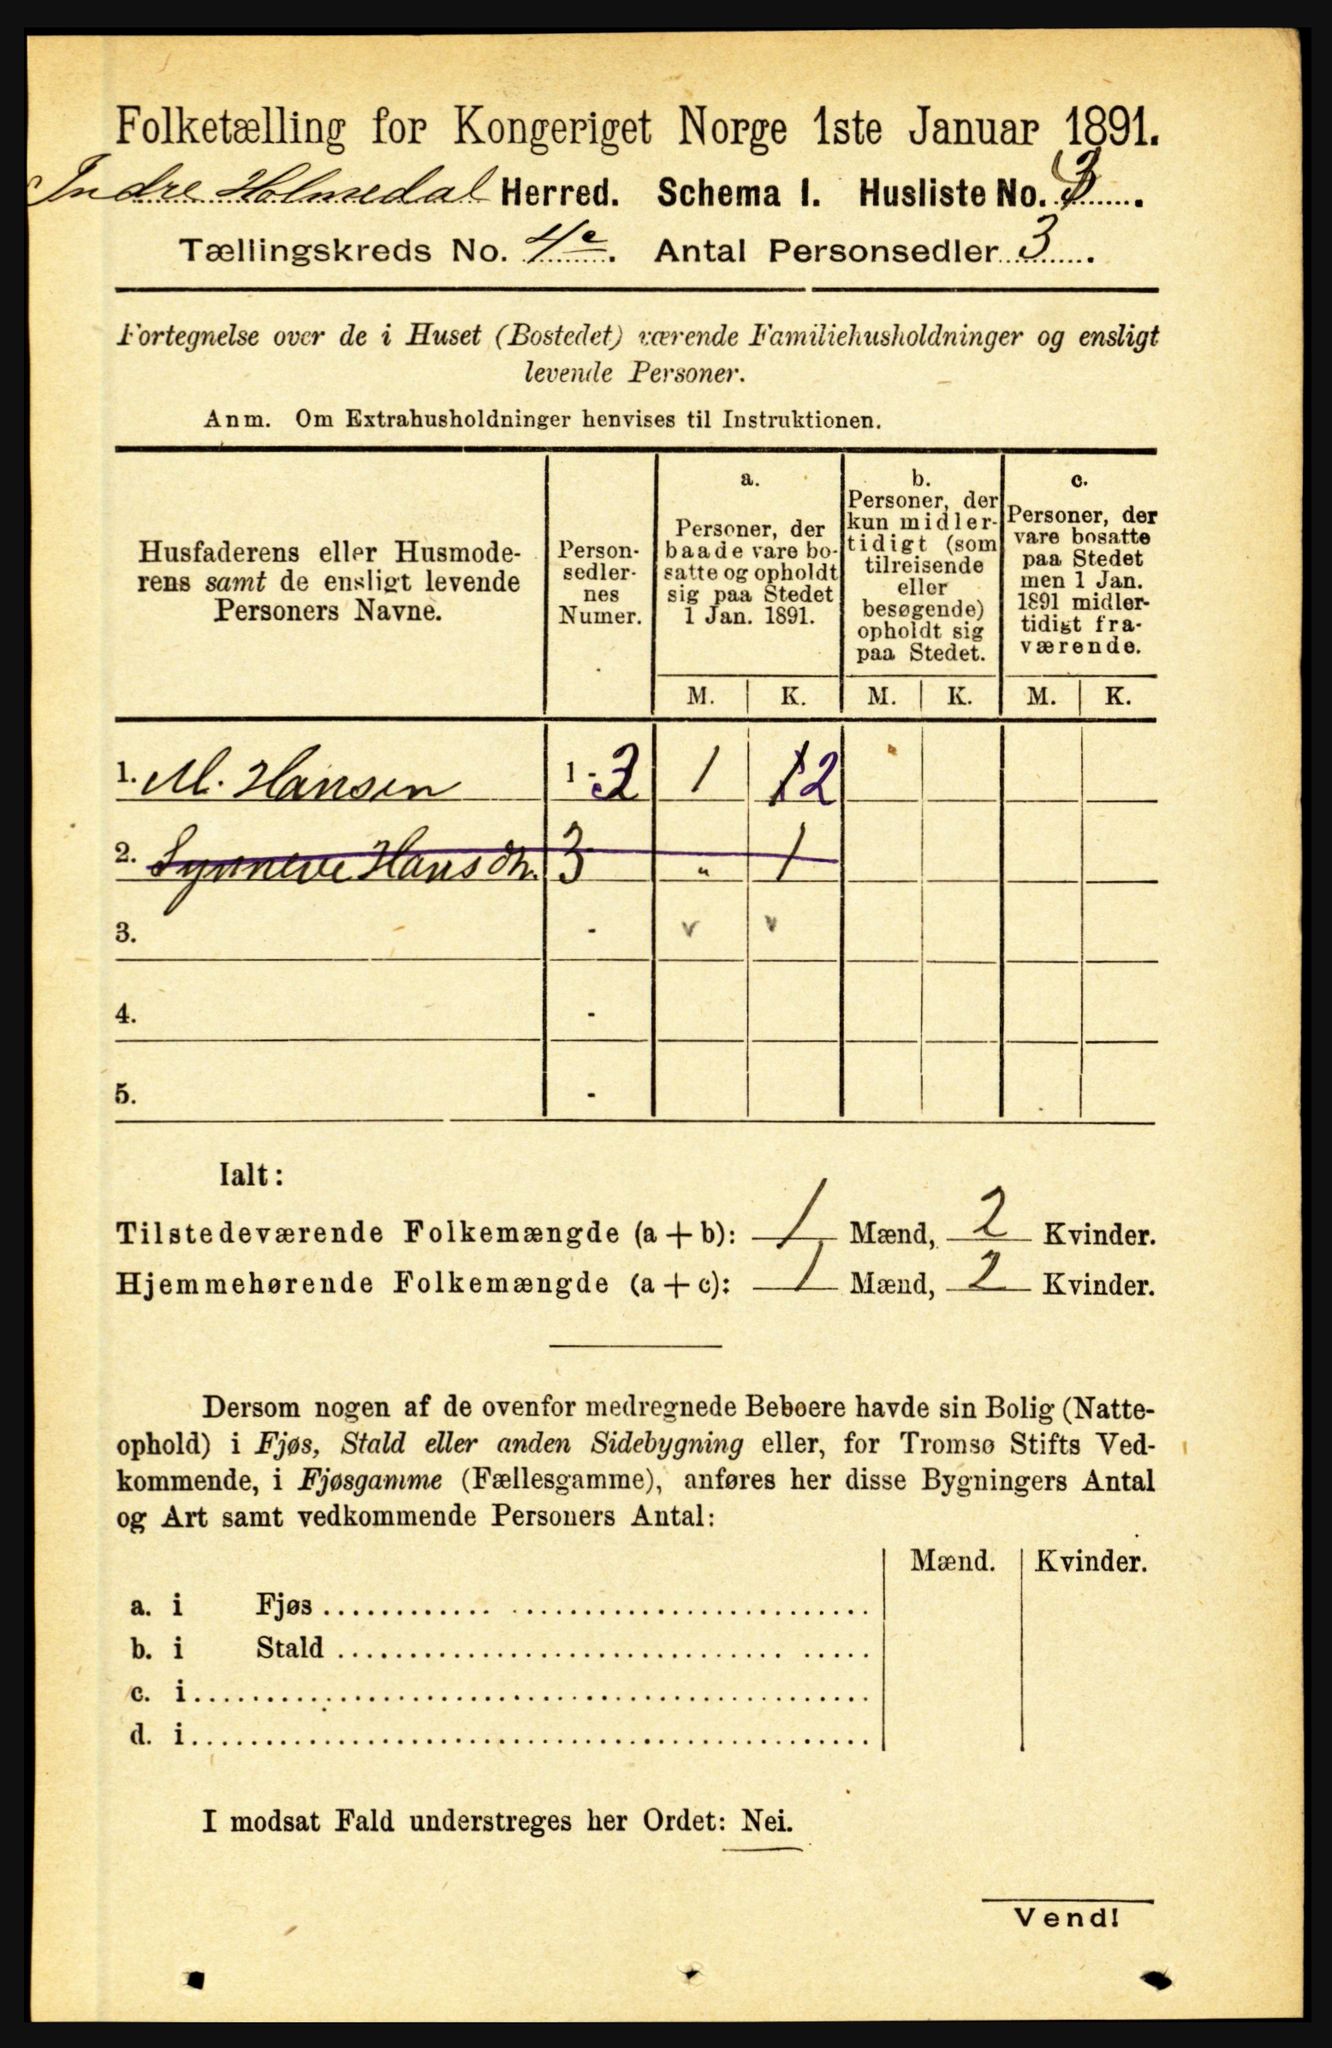 Folketælling for Kongeriget Norge 1ste Januar 1891.
Indre Holmedal Herred. Schema I. Husliste No. 3.
Tællingskreds No. 4e. Antal Personsedler 3.
Fortegnelse over de i Huset (Bostedet) værende Familiehusholdninger og ensligt
levende Personer.
Anm. Om Extrahusholdninger henvises til Instruktionen.
Husfaderens eller Husmode-
rens samt de ensligt levende
Personers Navne.
Person-
sedler-
nes
Numer.
a.
Personer, der
baade vare bo-
satte og opholdt
sig paa Stedet
1 Jan. 1891.
b.
Personer, der
kun midler-
tidigt (som
tilreisende
eller
besøgende)
opholdt sig
paa Stedet.
c.
Personer, der
vare bosatte
paa Stedet
men 1 Jan.
1891 midler-
tidigt fra-
værende.
M. K. M. K. M. K.
1. M. Hansen 1 - 3 1 2
2. Synneve Hansdh. 3 „ 1
3. - v v
4. -
5. -
Ialt:
Tilstedeværende Folkemængde (a + b): 1 Mænd, 2 Kvinder.
Hjemmehørende Folkemængde (a + c): 1 Mænd, 2 Kvinder.
Dersom nogen af de ovenfor medregnede Beboere havde sin Bolig (Natte-
ophold) i Fjøs, Stald eller anden Sidebygning eller, for Tromsø Stifts Ved-
kommende, i Fjøsgamme (Fællesgamme), anføres her disse Bygningers Antal
og Art samt vedkommende Personers Antal:
Mænd. Kvinder.
a. i Fjøs
b. i Stald
c. i
d. i
I modsat Fald understreges her Ordet: Nei.
Vend!